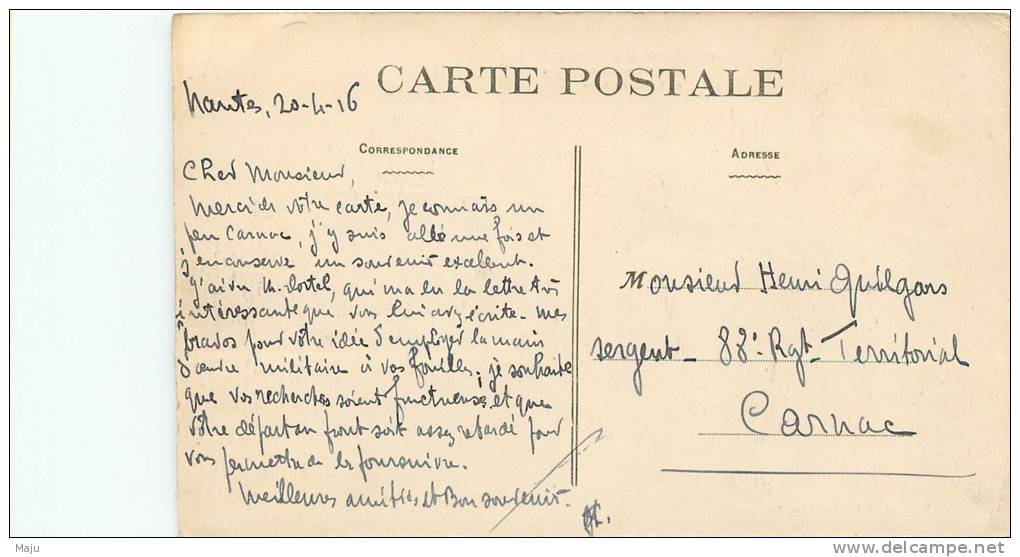 CARTE POSTALE
Nantes, 20-4-16
CORRESPONDANCE
Cher Monsieur,
Merci de votre carte, je connais un
peu Carnac, j'y suis allé une fois et
j'en conserve un souvenir excellent.
J'ai vu M. Dortel, qui m'a lu la lettre très
intéressante que vous lui avez écrite. Mes
bravos pour votre idée d'employer la main
d'œuvre militaire à vos fouilles; je souhaite
que vos recherches soient fructueuses et que
votre départ au front soit assez retardé pour
vous permettre de les poursuivre.
Meilleures amitiés et Bon souvenir.
ADRESSE
Monsieur Henri Quilgars
sergent - 88e Rgt - Territorial
Carnac
Maju
delcampe.net